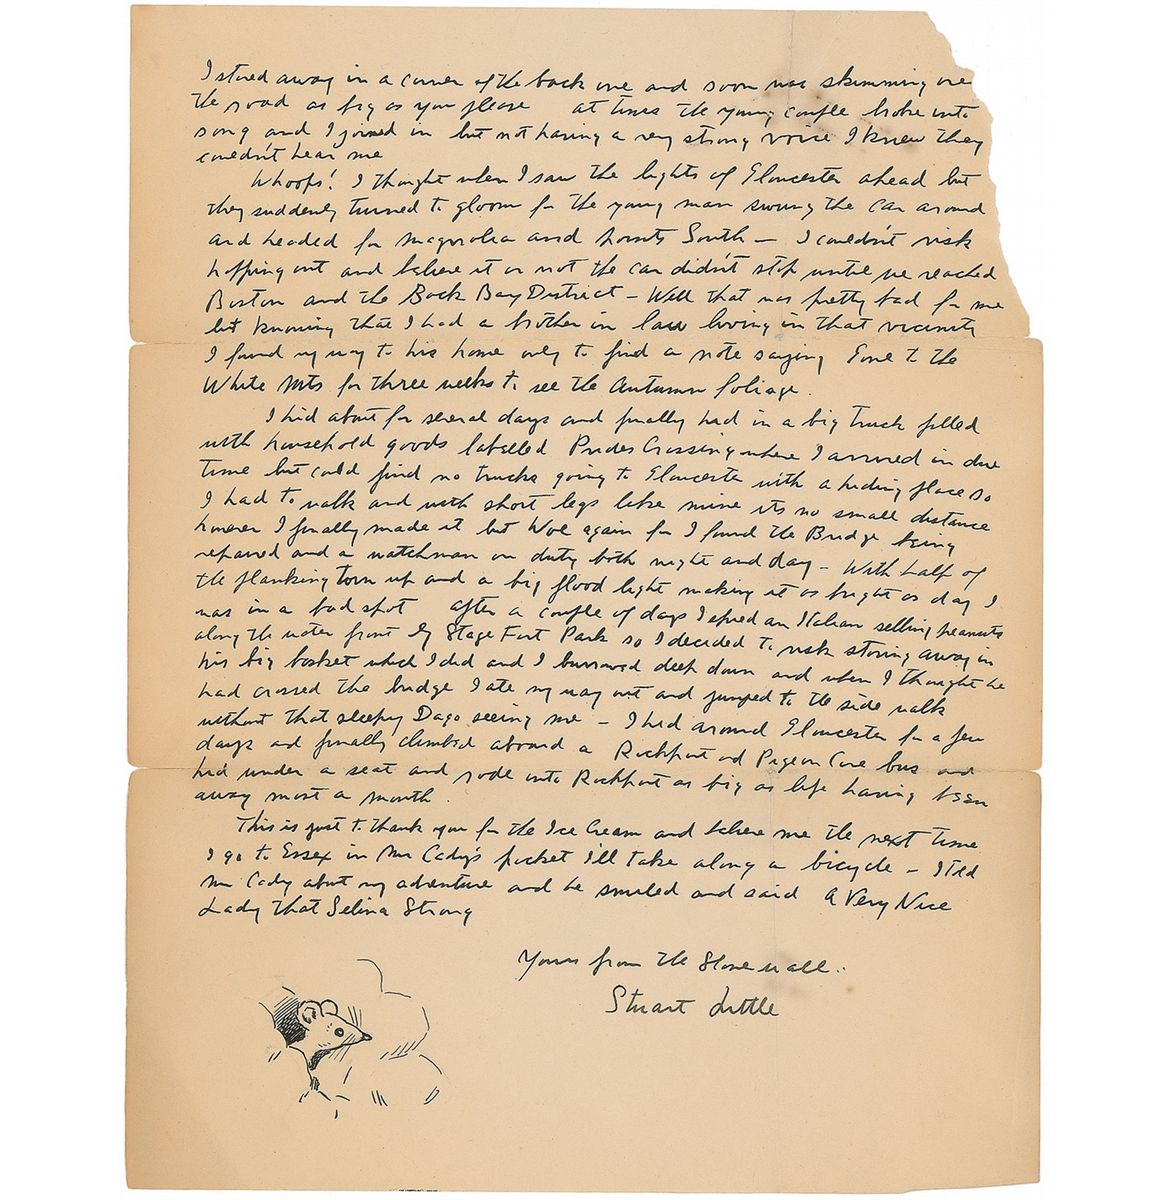 I stowed away in a corner of the back one and soon was skimming over
the road as big as you please at times the young couple broke into
song and I joined in but not having a very strong voice I knew they
couldn't hear me
Whoops! I thought when I saw the lights of Gloucester ahead but
they suddenly turned to gloom for the young man swung the car around
and headed for Magnolia and points South – I couldn't risk
hopping out and believe it or not the car didn't stop until we reached
Boston and the Back Bay District – Well that was pretty bad for me
but knowing that I had a brother in law living in that vicinity
I found my way to his home only to find a note saying Gone to the
White Mts for three weeks to see the Autumn foliage.
I hid about for several days and finally hid in a big truck filled
with household goods labelled Prides Crossing where I arrived in due
time but could find no trucks going to Gloucester with a hiding place so
I had to walk and with short legs like mine its no small distance
however I finally made it but Woe again for I found the Bridge being
repaired and a watchman on duty both night and day – With half of
the planking torn up and a big flood light making it as bright as day I
was in a bad spot after a couple of days I spied an Italian selling peanuts
along the water front by Stage Fort Park so I decided to risk stowing away in
his big basket which I did and I burrowed deep down and when I thought he
had crossed the bridge I ate my way out and jumped to the side walk
without that sleepy Dago seeing me – I hid around Gloucester for a few
days and finally climbed aboard a Rockport and Pigeon Cove bus and
hid under a seat and rode into Rockport as big as life having been
away most a month.
This is just to thank you for the Ice Cream and believe me the next time
I go to Essex in Mr Cady's pocket I'll take along a bicycle – I told
Mr Cady about my adventure and he smiled and said A Very Nice
Lady that Selina Strong
Yours from the Stone wall..
Stuart Little